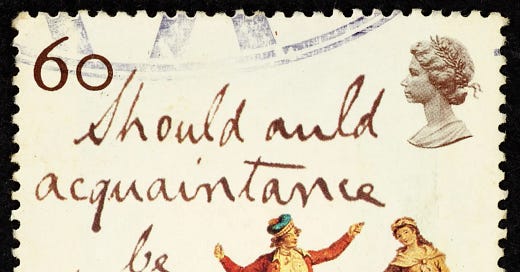 60
Should auld
acquaintance
be